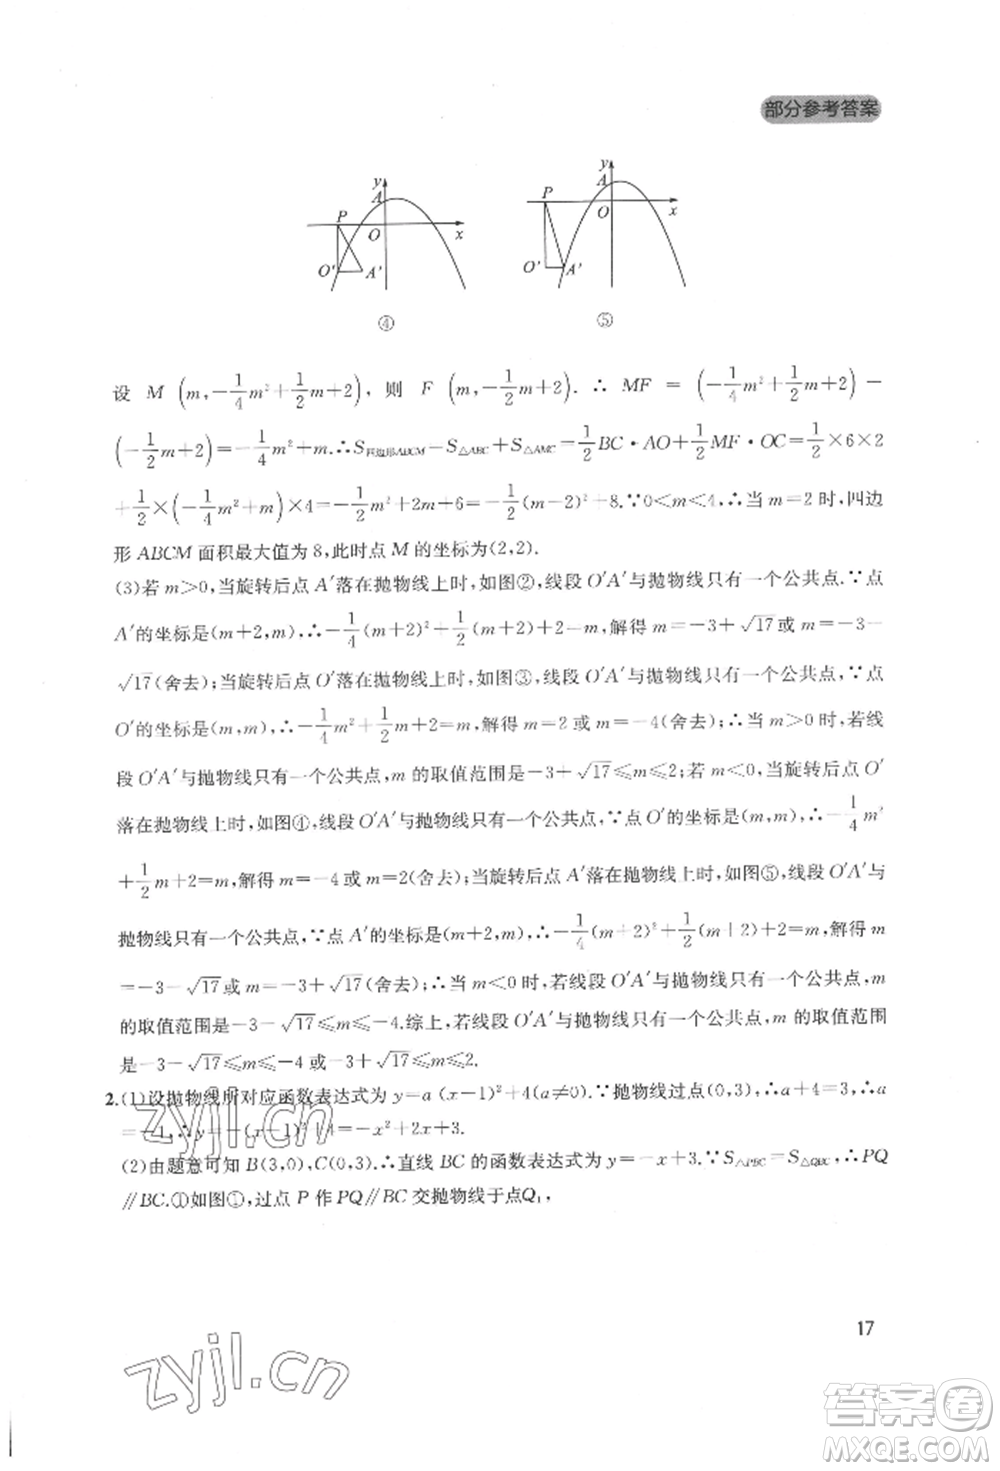 部分参考答案
y A P O x O' A' ④
y A P O x O' A' ⑤
设 M (m,-1/4m²+1/2m+2), 则 F (m,-1/2m+2).∴ MF = (-1/4m²+1/2m+2)-
(-1/2m+2)=-1/4m²+m.∴S四边形ABCM=S△ABC+S△AMC=1/2BC·AO+1/2MF·OC=1/2×6×2
+1/2×(-1/4m²+m)×4=-1/2m²+2m+6=-1/2(m-2)²+8.∵0<m<4,∴当 m=2时,四边
形 ABCM 面积最大值为 8,此时点 M 的坐标为(2,2).
(3)若 m>0,当旋转后点 A'落在抛物线上时,如图②,线段 O'A'与抛物线只有一个公共点.∵点
A'的坐标是(m+2,m),∴-1/4(m+2)²+1/2(m+2)+2=m,解得 m=-3+√17或 m=-3-
√17(舍去);当旋转后点 O'落在抛物线上时,如图③,线段 O'A'与抛物线只有一个公共点,∵点
O'的坐标是(m,m),∴-1/4m²+1/2m+2=m,解得 m=2或 m=-4(舍去);∴当 m>0时,若线
段 O'A'与抛物线只有一个公共点,m 的取值范围是-3+√17≤m≤2;若 m<0,当旋转后点 O'
落在抛物线上时,如图④,线段 O'A'与抛物线只有一个公共点,∵点 O'的坐标是(m,m),∴-1/4m²
+1/2m+2=m,解得 m=-4或 m=2(舍去);当旋转后点 A'落在抛物线上时,如图⑤,线段 O'A'与
抛物线只有一个公共点,∵点 A'的坐标是(m+2,m),∴-1/4(m+2)²+1/2(m+2)+2=m,解得 m
=-3-√17或 m=-3+√17(舍去);∴当 m<0时,若线段 O'A'与抛物线只有一个公共点,m
的取值范围是-3-√17≤m≤-4.综上,若线段 O'A'与抛物线只有一个公共点,m 的取值范围
是-3-√17≤m≤-4或-3+√17≤m≤2.
2.(1)设抛物线所对应函数表达式为 y=a(x-1)²+4(a≠0).∵抛物线过点(0,3),∴a+4=3,∴a
=-1,∴y=-(x-1)²+4=-x²+2x+3.
(2)由题意可知 B(3,0),C(0,3).∴直线 BC 的函数表达式为 y=-x+3.∵S△PBC=S△QBC,∴PQ
∥BC.①如图①,过点 P 作 PQ∥BC 交抛物线于点Q₁,
17
zyjl.cn
zyjl.cn
答案圈
MXQE.COM